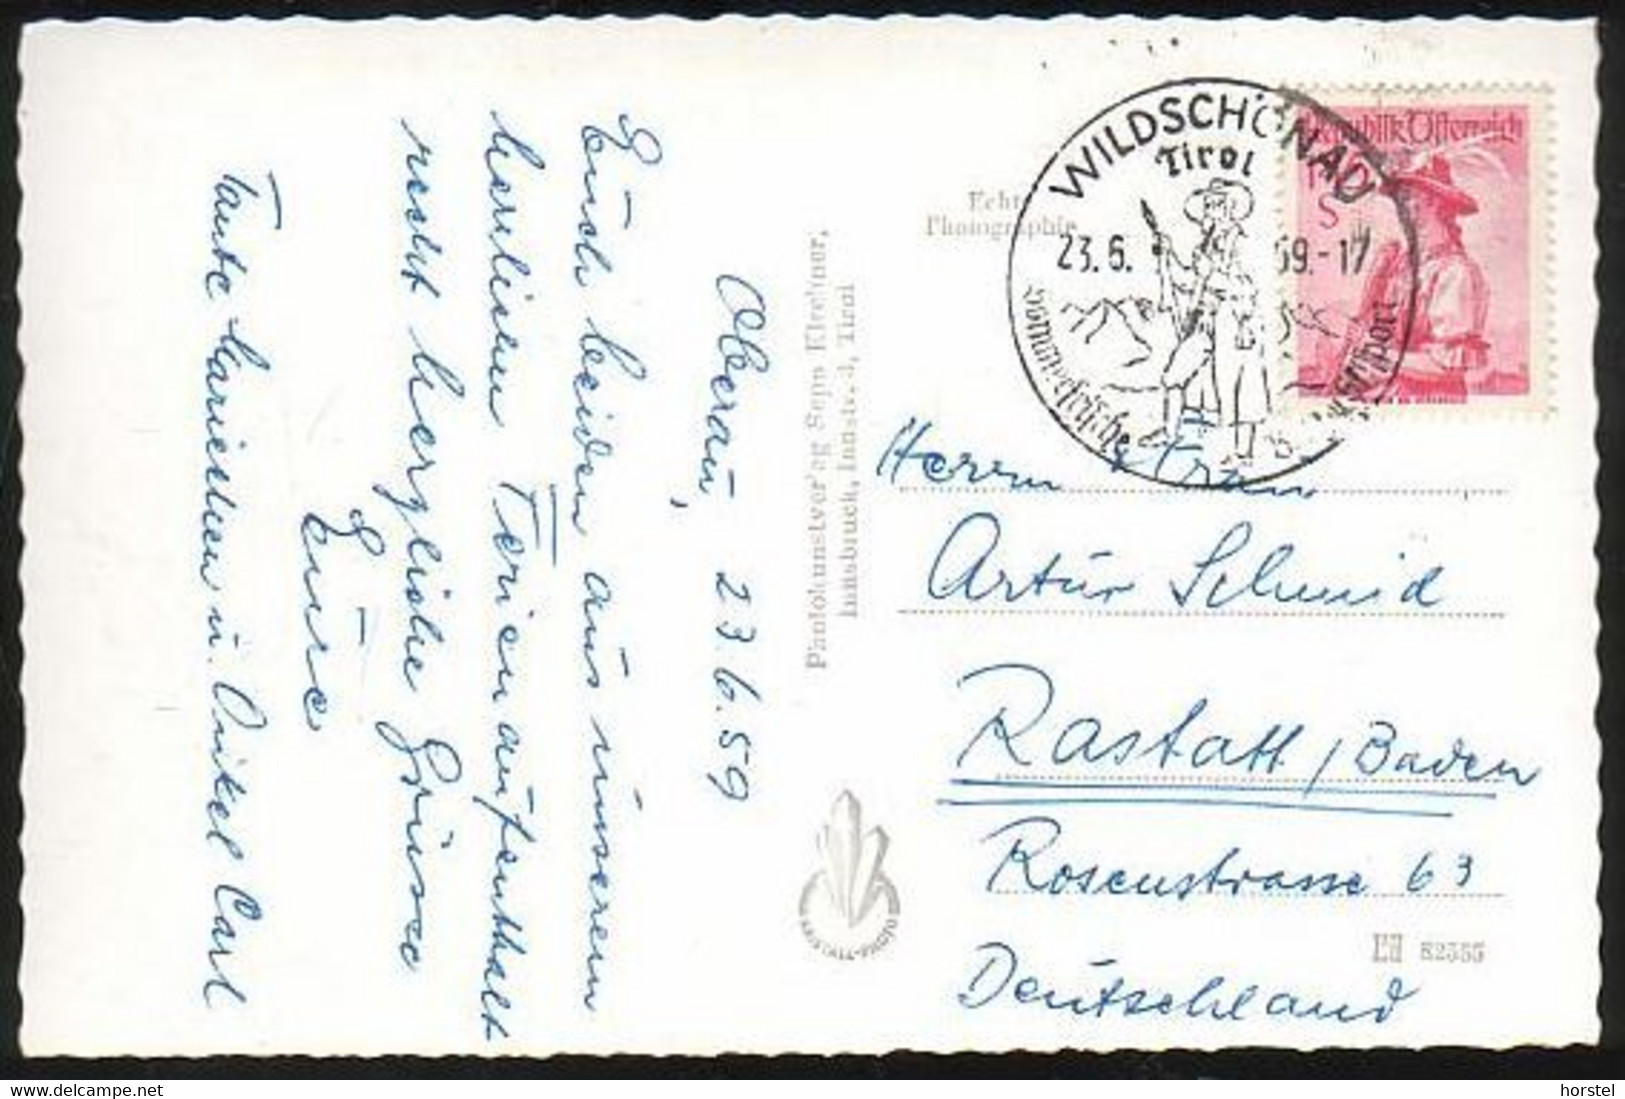 Oberau, 23.6.59
Euch beiden aus unserem
herrlichen Ferienaufenthalt
recht herzliche Grüsse
Eure
Tante Mariechen u. Onkel Carl
Photokunstverlag Sepp Kirchner,
Innsbruck, Innstr. Tirol
KRISTALL-PHOTO
Echte
Photographie
WILDSCHÖNAU
Tirol
23.6. 59.-17
Sommerfrische
Republik Österreich
S
Herrn Frau
Artur Schmid
Rastatt / Baden
Rosenstrasse 63
Deutschland
82355
horstel